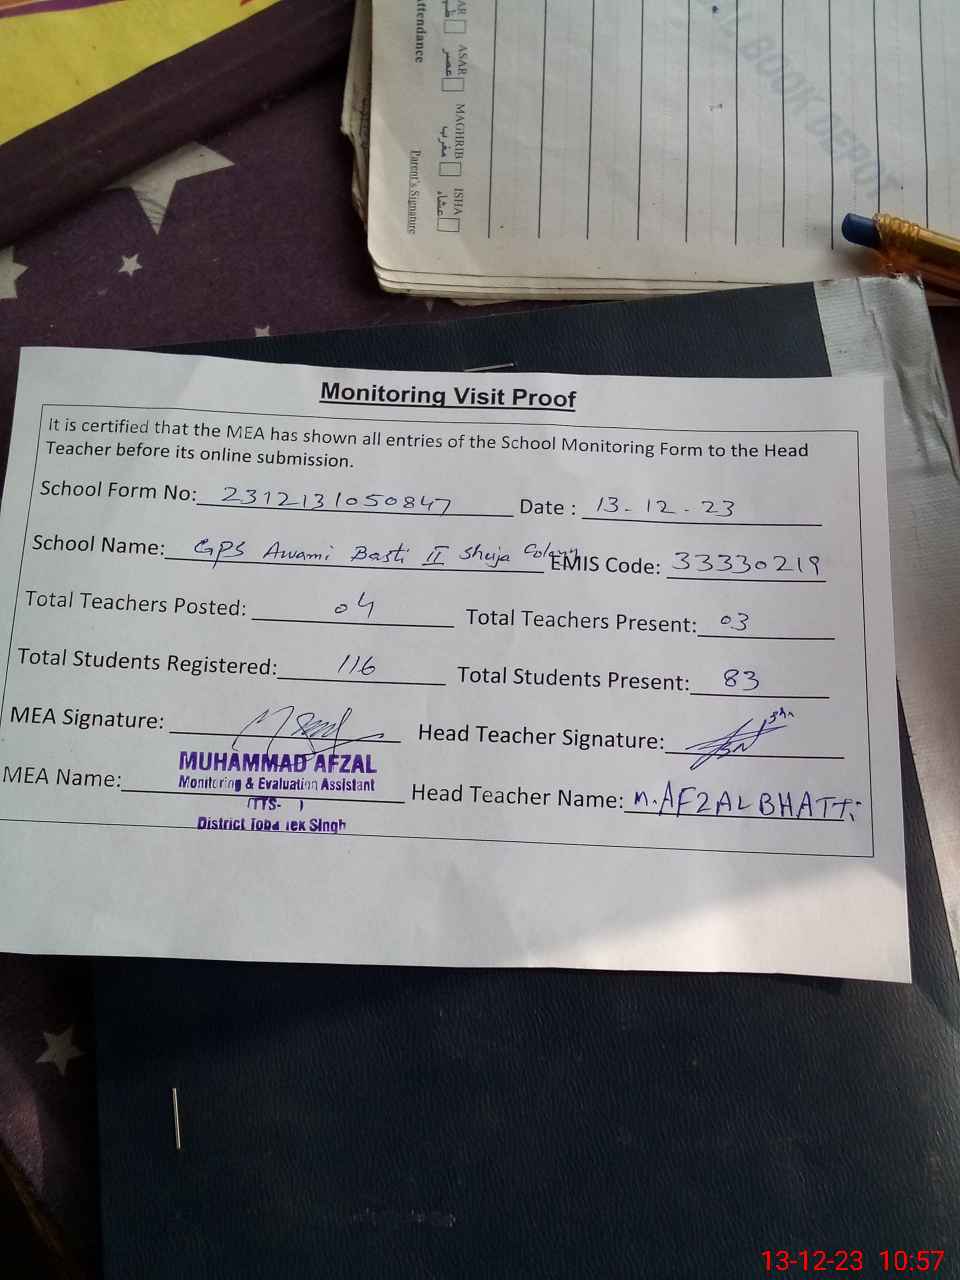 AR
ASAR
عصر
MAGHRIB
مغرب
ISHA
عشاء
ttendance
Parent's Signature
BOOK DEPOT
Monitoring Visit Proof
It is certified that the MEA has shown all entries of the School Monitoring Form to the Head
Teacher before its online submission.
School Form No: 2312131050847 Date : 13-12-23
School Name: GPS Awami Basti II Shuja Colony EMIS Code: 33330219
Total Teachers Posted: 04 Total Teachers Present: 03
Total Students Registered: 116 Total Students Present: 83
MEA Signature: Head Teacher Signature:
MUHAMMAD AFZAL
Monitoring & Evaluation Assistant
MEA Name: Head Teacher Name: M.AFZAL BHATTI
(TTS- )
District Toba Tek Singh
13-12-23 10:57